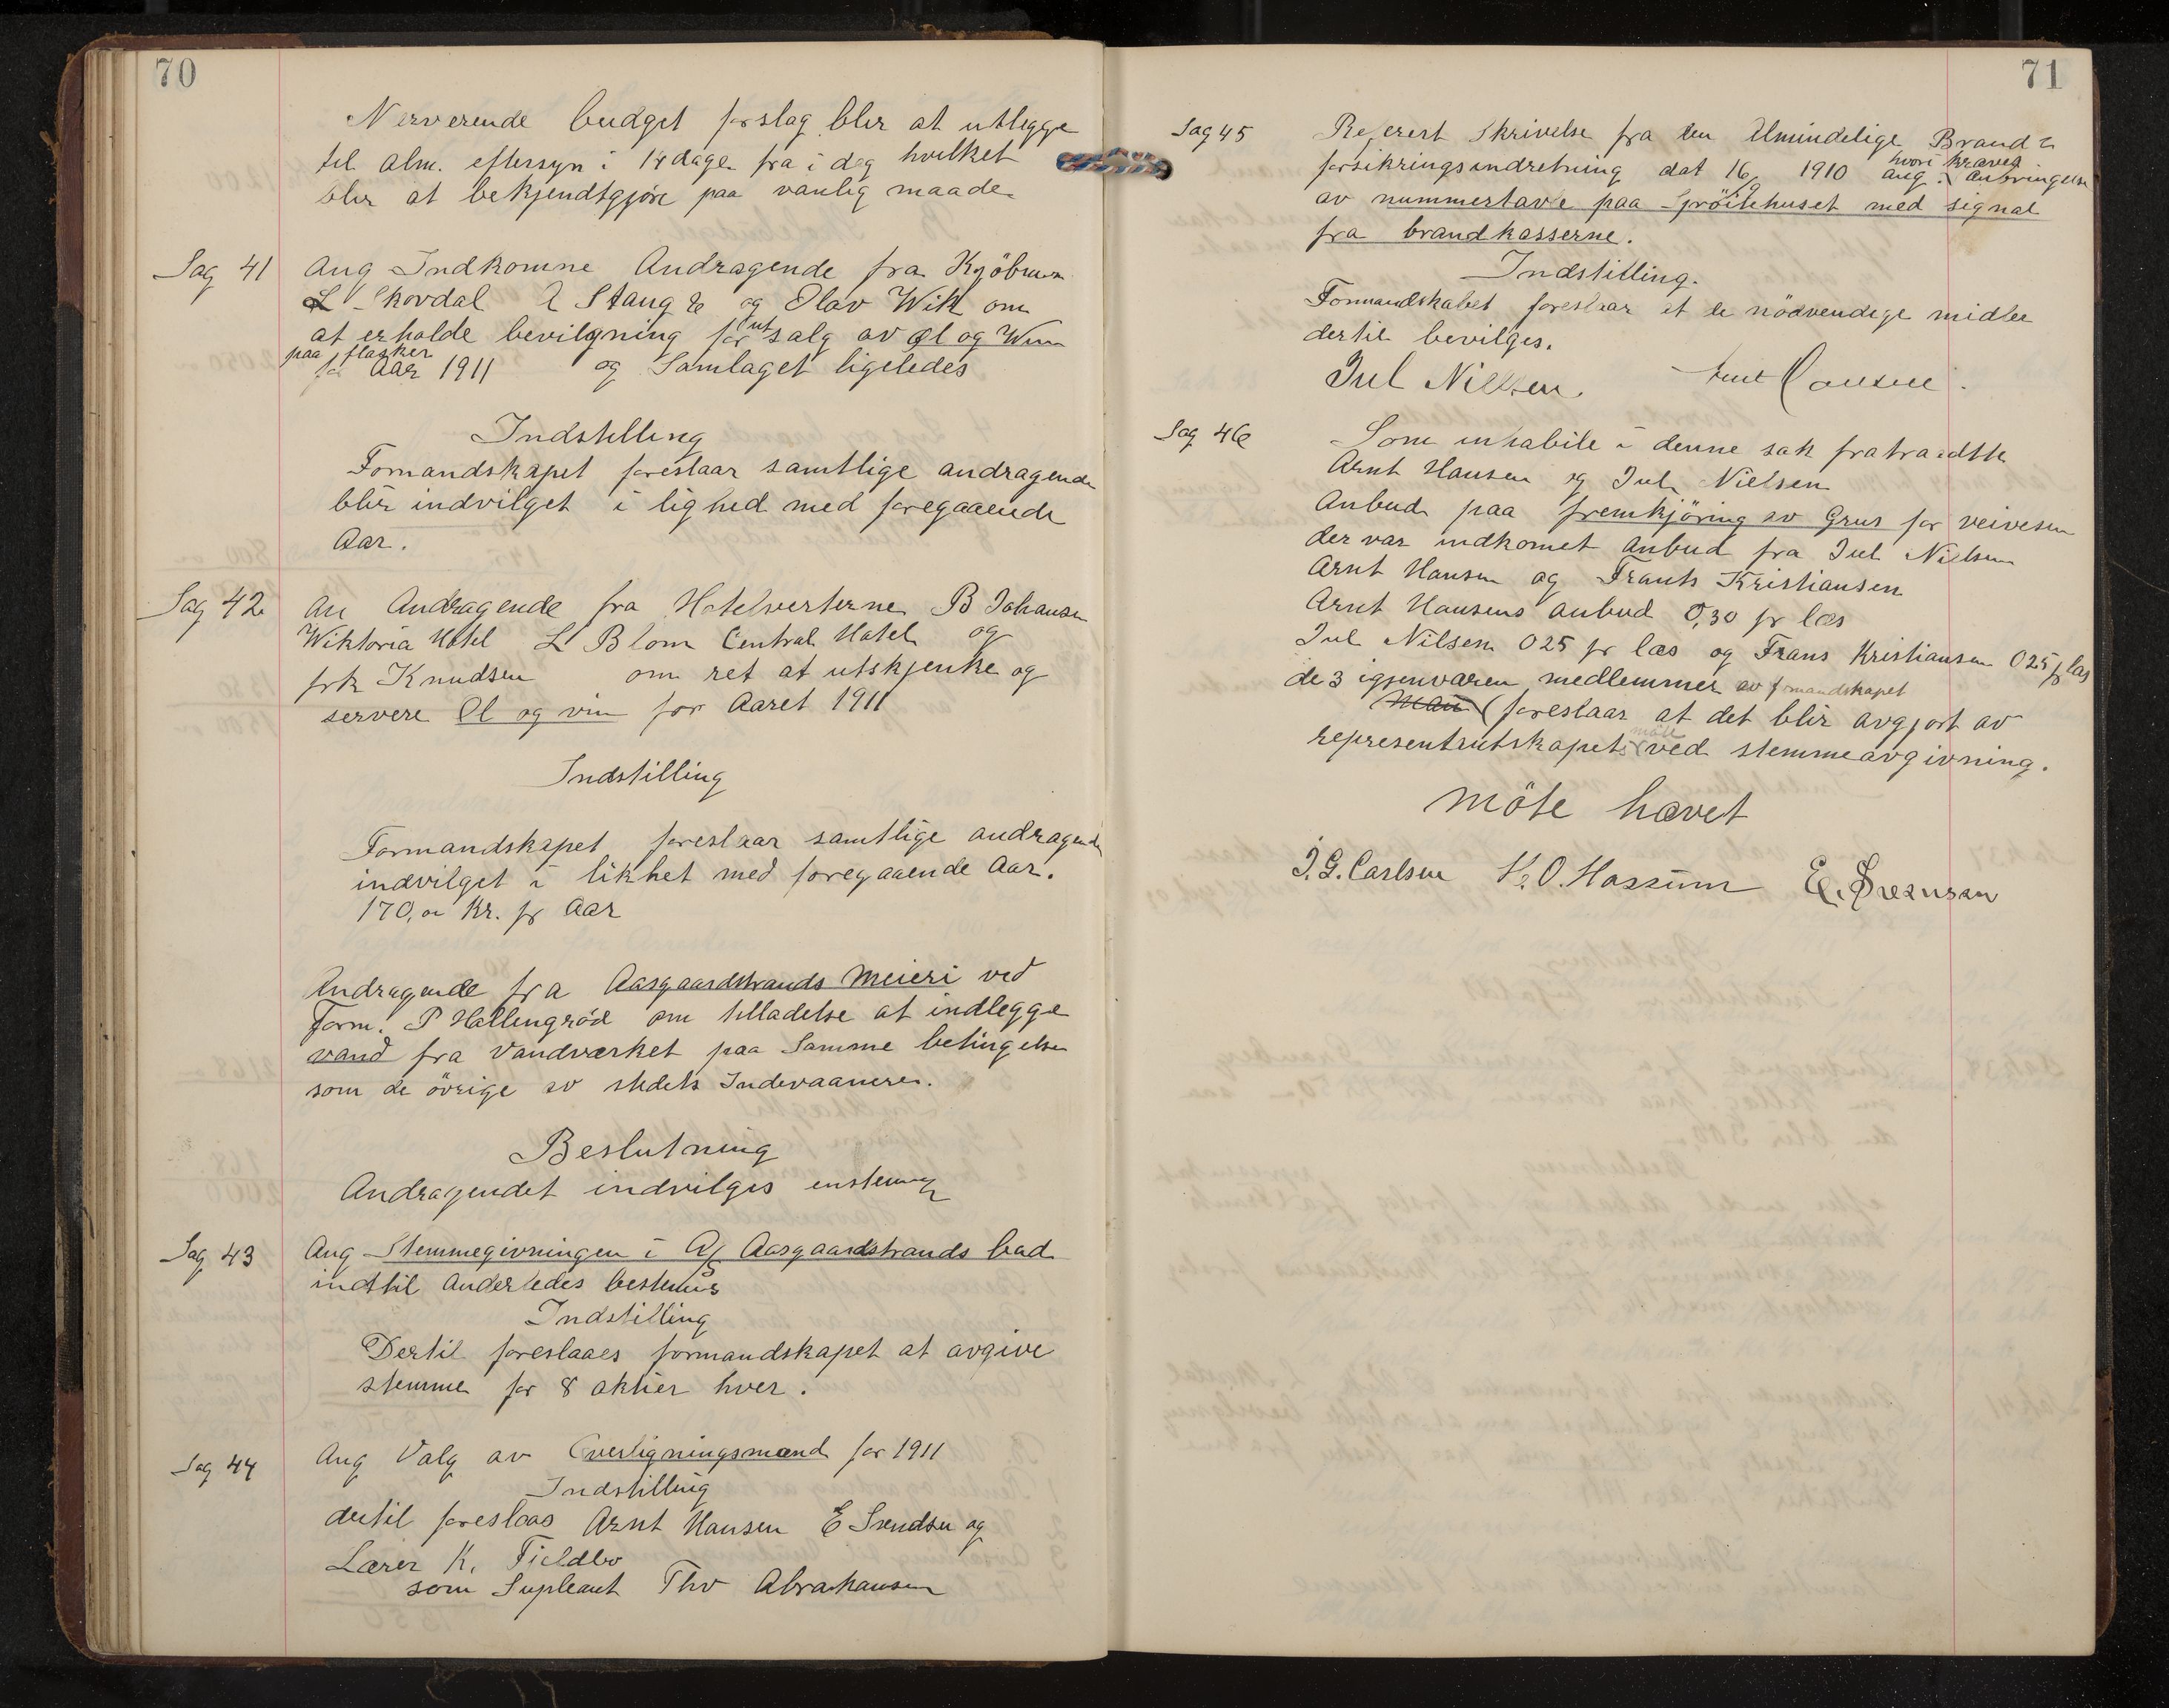 70
Nerverende budget forslag blir at utlegge
til alm. eftersyn i 14 dage fra i dag hvilket
blir at bekjendtgjøre paa vanlig maade
Sag 41 Ang Indkomne Andragende fra Kjöbmen
L Skovdal A Stang & og Olav Wik om
at erholde bevilgning for utsalg av øl og Win
paa flasker
for Aar 1911 og Samlaget ligeledes
Indstilling
Formandskapet foreslaar samtlige andragende
blir indvilget i lighed med foregaaende
Aar.
Sag 42 An Andragende fra Hotelverterne B Johansen
Wiktoria Hotel L Blom Central Hotel og
frk Knudsen om ret at utskjenke og
servere Øl og vin for Aaret 1911
Indstilling
Formandskapet foreslaar samtlige andragende
indvilget i likhet med foregaaende Aar.
170, Kr. pr Aar
Andragende fra Aasgaardstrands Meieri ved
Form. P Hallengröd om tilladelse at indlegge
vand fra Vandverket paa Samme betingelse
som de övrige av stedets Indevaanere.
Beslutning
Andragendet indvilges enstemmig
Sag 43 Ang Stemmegivningen i A/S Aasgaardstrands bad
indtil anderledes bestemes
Indstilling
Dertil foreslaaes formandskapet at avgive
stemme for 8 aktier hver.
Sag 44 Ang Valg av Overligningsmænd for 1911
Indstilling
dertil foreslaas Arnt Hansen E Svendsen og
Lærer K. Fjeldbo
som Supleant Thv Abrahamsen
71
Sag 45 Referert Skrivelse fra den Almindelige Brand
forsikringsindretning dat 16/9 1910 ang. hvori kræves anbringelse
av nummertavle paa Spröitehuset med signal
fra brandkasserne.
Indstilling.
Formandskabet foreslaar at de nödvendige midler
dertil bevilges.
Jul Nielsen. Arnt Hansen.
Sag 46 Som inhabile i denne sak fratraadte
Arnt Hansen og Jul. Nielsen
Anbud paa fremkjöring av Grus for veivesen
der var indkomet anbud fra Jul Nielsen
Arnt Hansen og Frants Kristiansen
Arnt Hansens anbud 0,30 pr læs
Jul Nilsen 025 pr læs og Frans Kristiansen 025 pr læs
de 3 igjenværen medlemmer av formandskapet
man foreslaar at det blir avgjort av
representantskapets møte ved stemmeavgivning.
Möte hævet
J. G. Carlsen K. O. Hassum E. Svensen